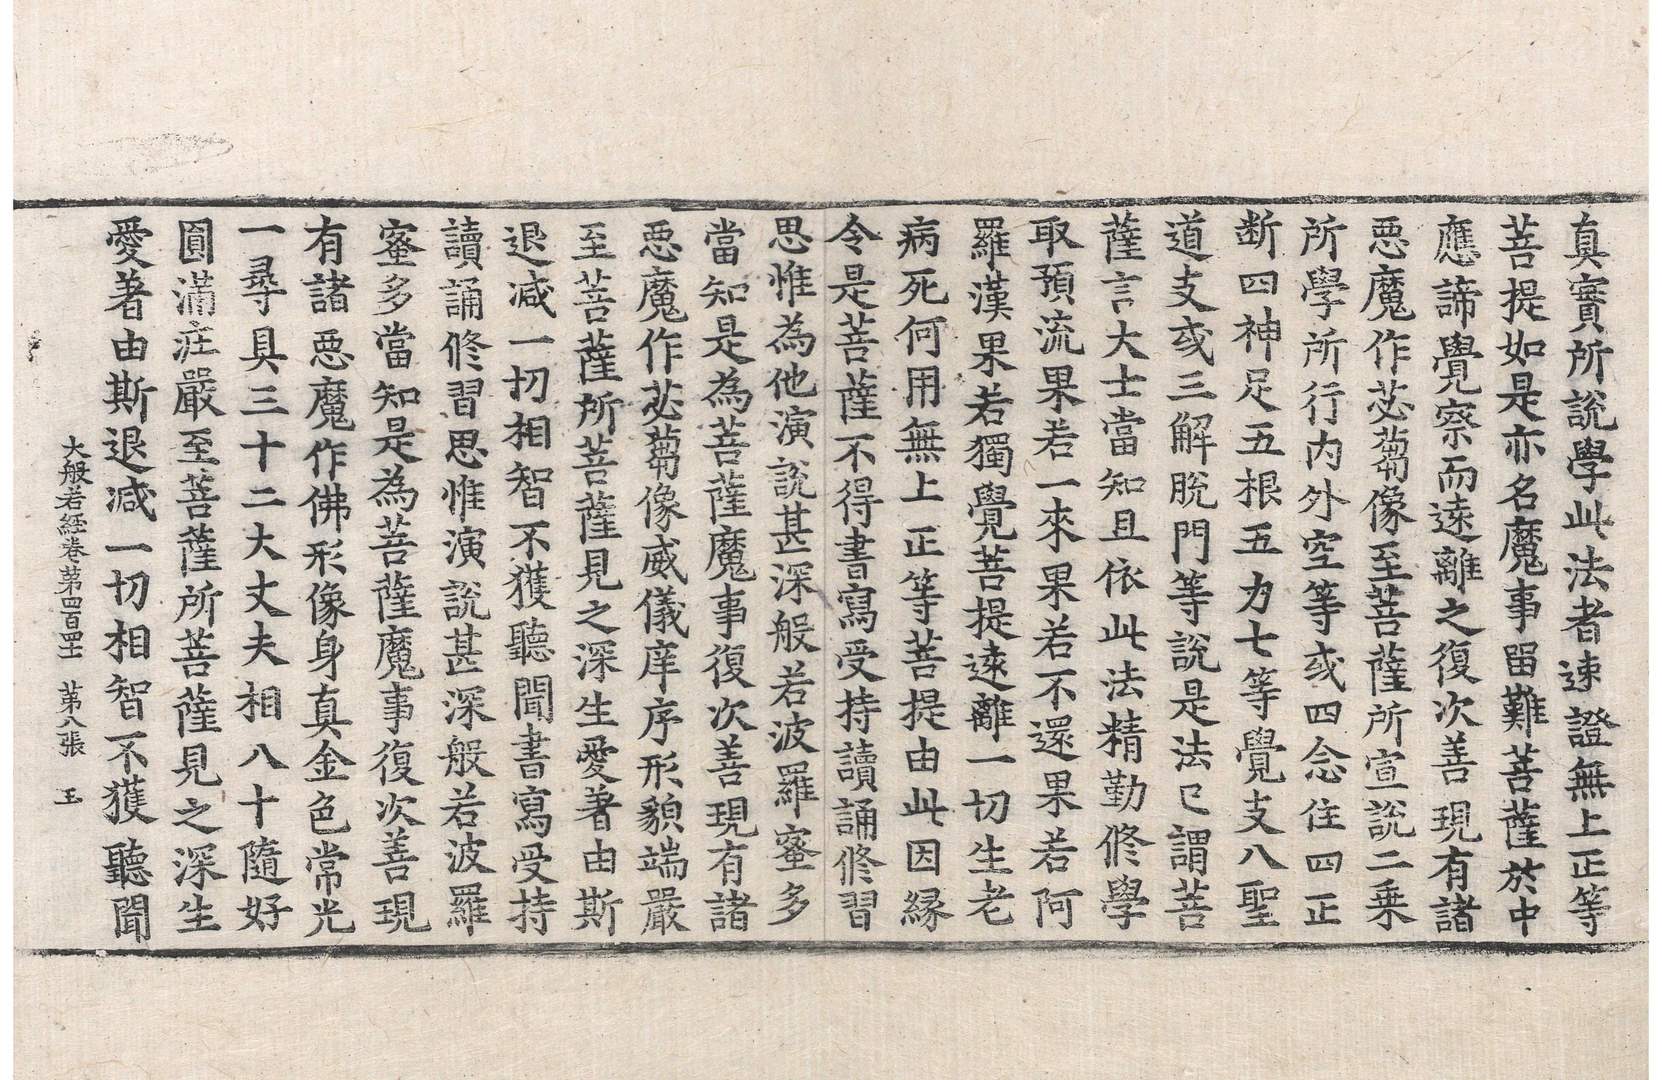 真實所說學此法者速證無上正等
菩提如是亦名魔事留難菩薩於中
應諦覺察而遠離之復次善現有諸
惡魔作苾芻像至菩薩所宣說二乘
所學所行內外空等或四念住四正
断四神足五根五力七等覺支八聖
道支或三解脫門等說是法已謂菩
薩言大士當知且依此法精勤修學
取預流果若一來果若不還果若阿
羅漢果若獨覺菩提遠離一切生老
病死何用無上正等菩提由此因緣
令是菩薩不得書寫受持讀誦修習
思惟為他演說甚深般若波羅蜜多
當知是為菩薩魔事復次善現有諸
惡魔作苾芻像威儀庠序形貌端嚴
至菩薩所菩薩見之深生愛著由斯
退减一切相智不獲聽聞書寫受持
讀誦修習思惟演說甚深般若波羅
蜜多當知是為菩薩魔事復次善現
有諸惡魔作佛形像身真金色常光
一尋具三十二大丈夫相八十隨好
圓滿莊嚴至菩薩所菩薩見之深生
愛著由斯退减一切相智不獲聽聞
大般若經卷第四百四十一 第八張 玉